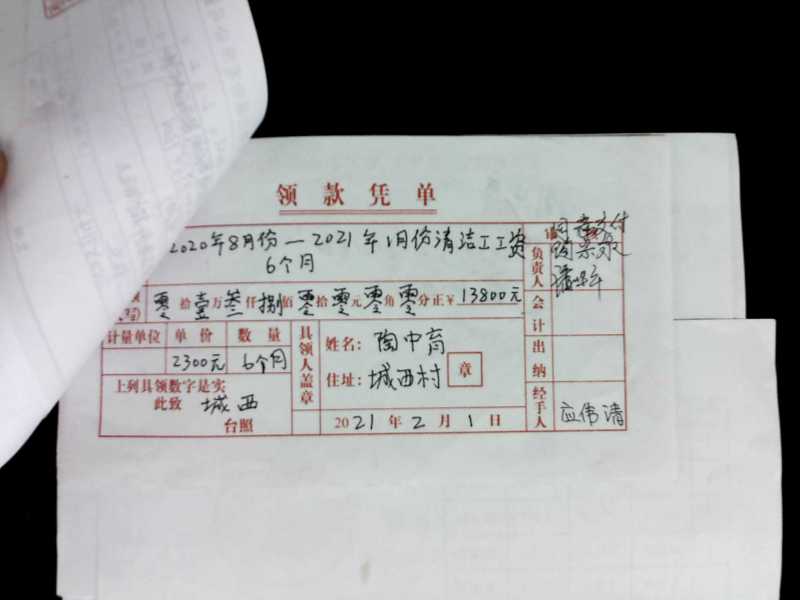 领款凭单
2020年8月份—2021年1月份清洁工工资
6个月
零拾壹万叁仟捌佰零拾零元零角零分正¥13800元
计量单位 单价 数量
2300元 6个月
上列具领数字是实
此致 城西
台照
具领人盖章
姓名: 陶中育
住址: 城西村 章
2021年2月1日
同意支付
负责人
会计
出纳
经手人 应伟清